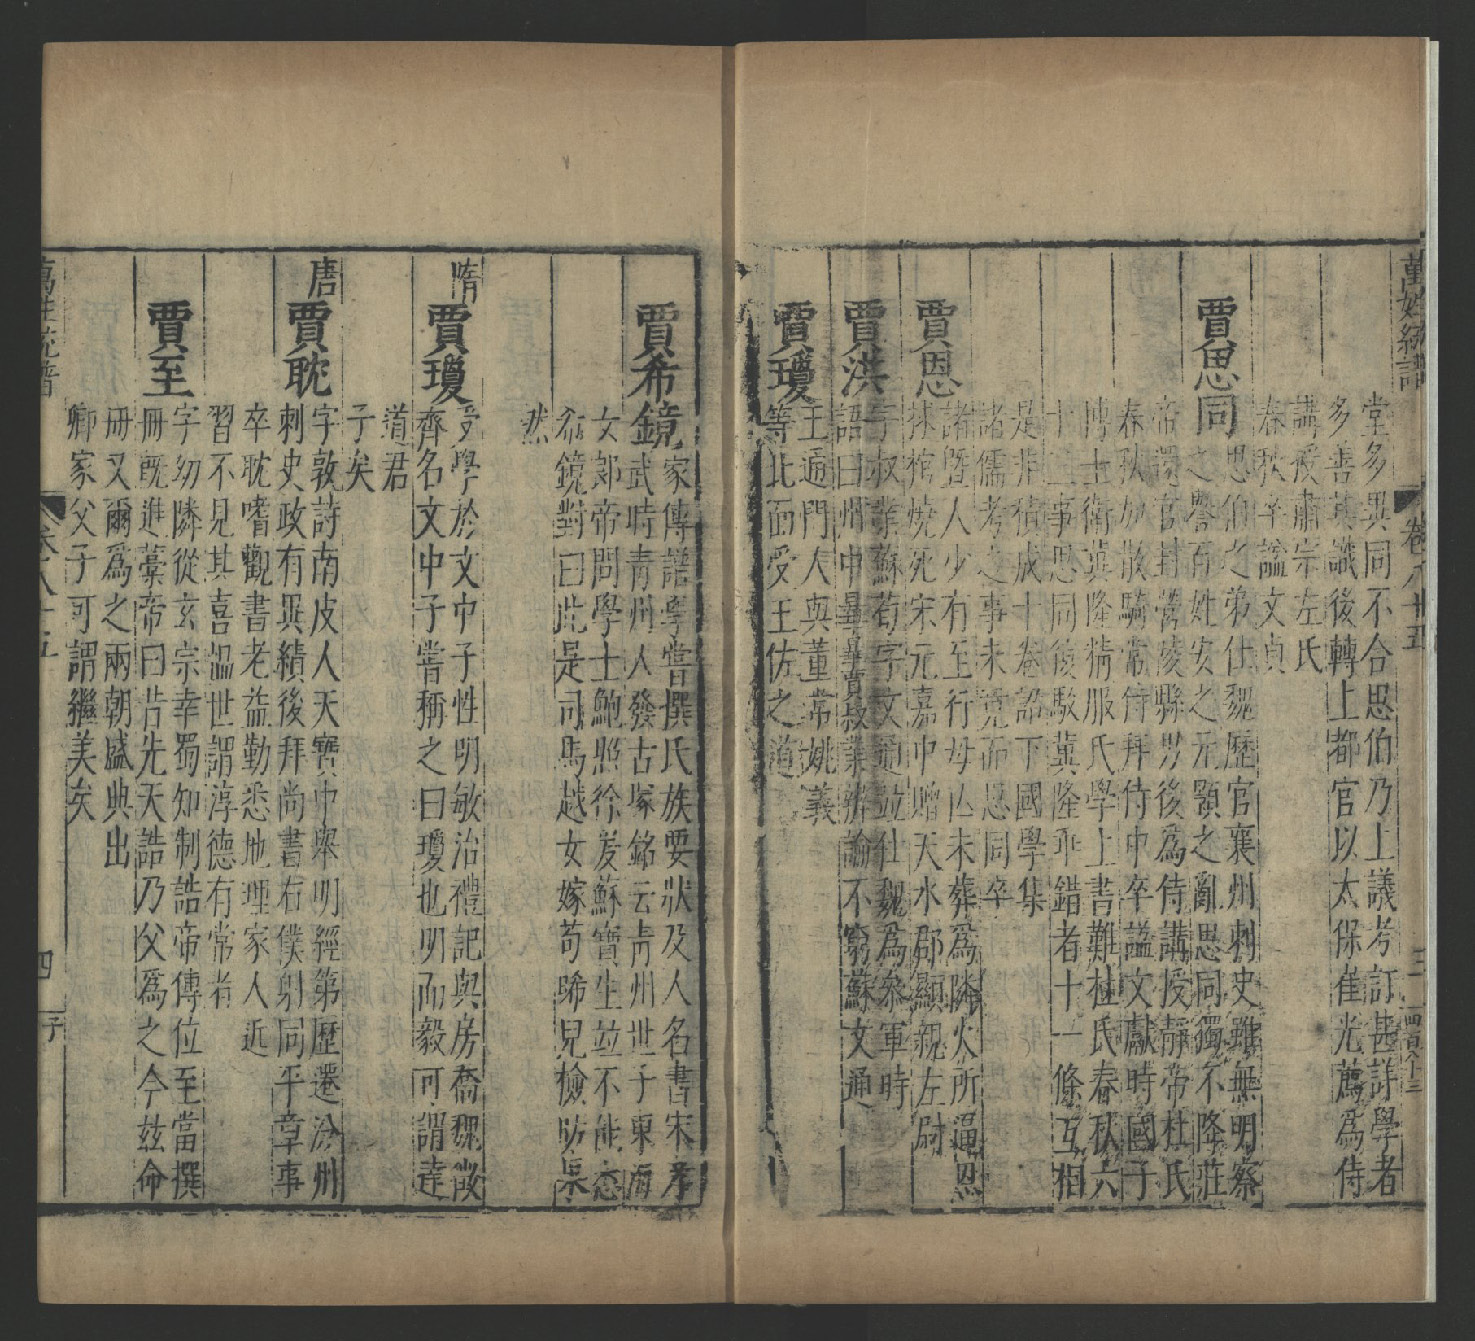 萬姓統譜 卷八十五 三
堂多異同不合思伯乃上議考訂甚詳學者
多善其議後轉上都官以太保崔光薦爲侍
講授肅宗左氏
春秋卒諡文貞
賈思同 思伯之弟仕魏歷官襄州刺史雖無明察
之譽百姓安之元顥之亂思同獨不降莊
帝還官封營陵縣男後爲侍講授靜帝杜氏
春秋加散騎常侍拜侍中卒諡文獻時國子
博士衛冀隆精服氏學上書難杜氏春秋六
十三事思同復駁冀隆乖錯者十一條互相
是非積成十卷詔下國學集
諸儒考之事未竟而思同卒
賈恩 諸曁人少有至行母亡未葬爲隣火所逼恩
抹棺燒死宋元嘉中贈天水郡顯親左尉
賈洪 字叔業蘇荀字文通竝仕魏爲叅軍時
語曰州中畢畢賈叔業辨論不窮蘇文通
賈瓊 王通門人與董常姚義
等北面受王佐之道
賈希鏡 家傳譜學嘗撰氏族要狀及人名書宋孝
武時青州人發古塚銘云青州世子東海
女郎帝問學士鮑照徐爰蘇寶生竝不能悉
希鏡對曰此是司馬越女嫁苟晞兒檢訪果
然
隋 賈瓊 受學於文中子性明敏治禮記與房喬魏徵
齊名文中子嘗稱之曰瓊也明而毅可謂達
道君
子矣
唐 賈耽 字敦詩南皮人天寶中舉明經第歷遷汾州
刺史政有異績後拜尚書右僕射同平章事
卒耽嗜觀書老益勤悉地理家人近
習不見其喜慍世謂淳德有常者
賈至 字幼隣從玄宗幸蜀知制誥帝傳位至當撰
冊既進藁帝曰昔先天誥乃父爲之今玆命
冊又爾爲之兩朝盛典出
卿家父子可謂繼美矣
萬姓統譜 卷八十五 四